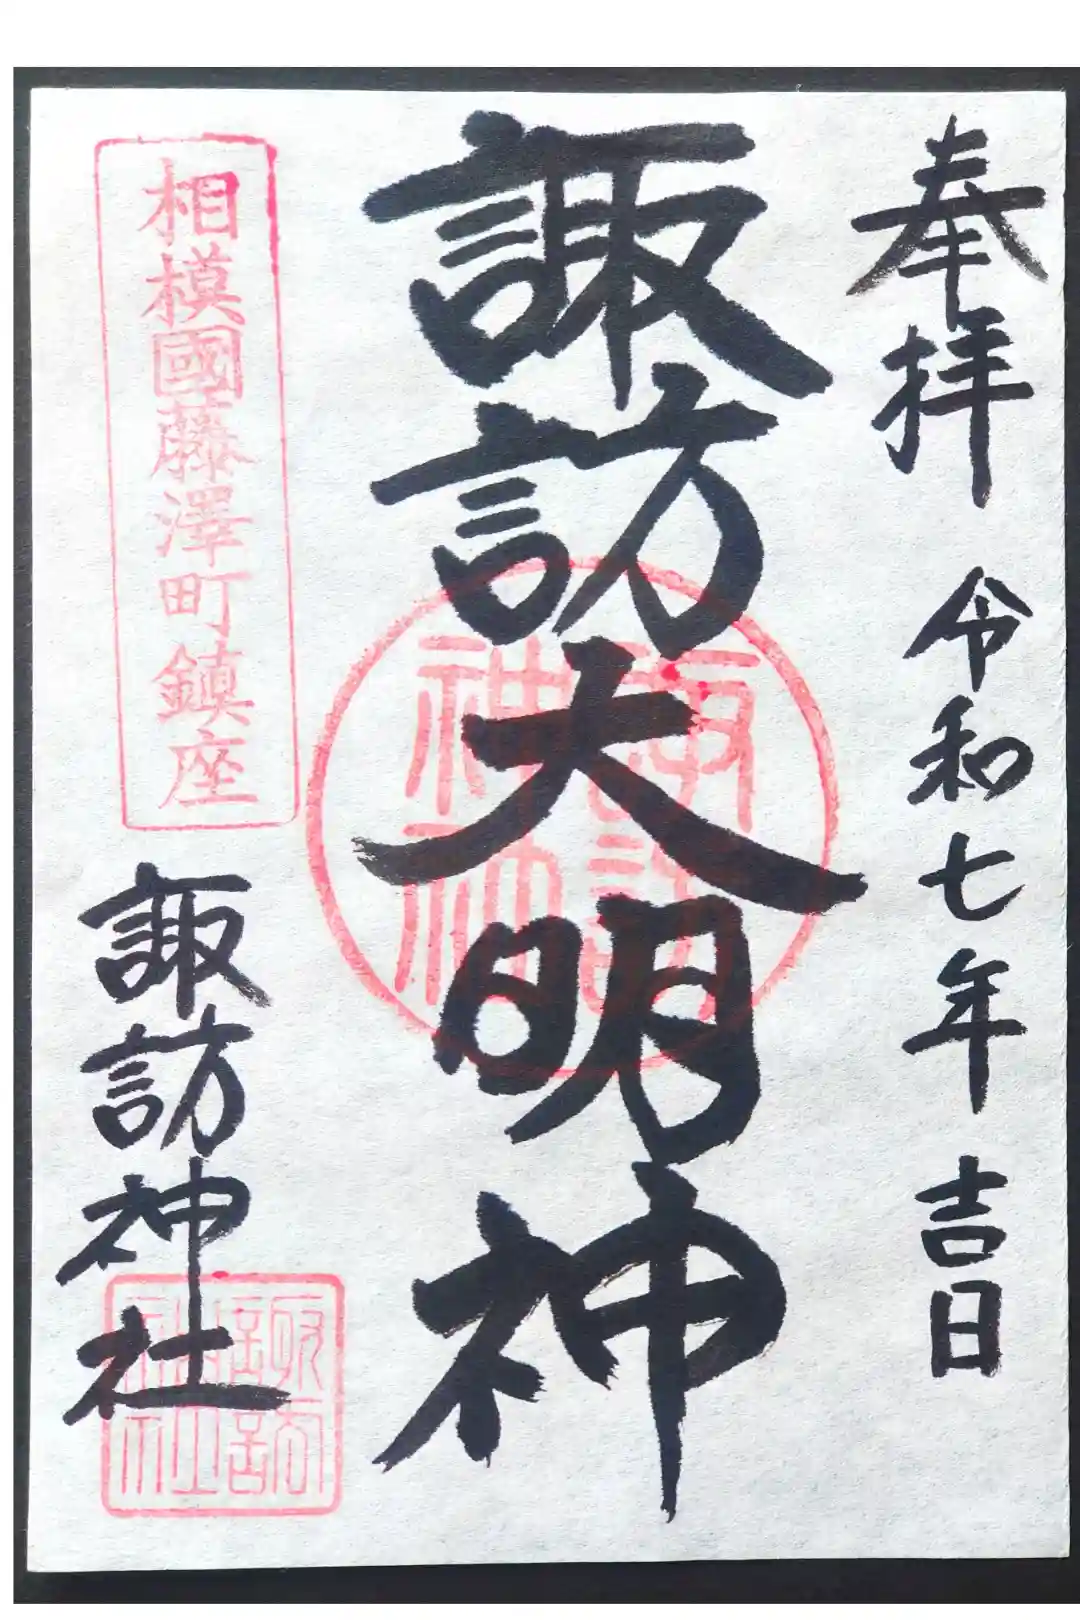 奉拝　令和七年　吉日
諏訪大明神
相模國藤澤町鎮座
諏訪神社